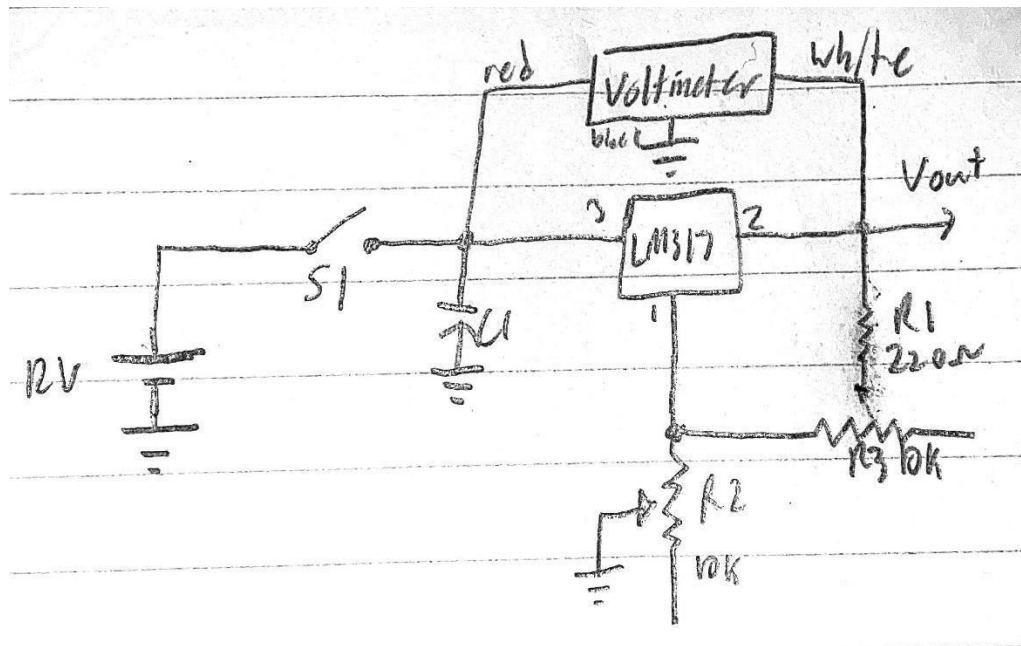 red
Voltimeter
white
black
Vout
3
LM317
2
S1
1
C1
R1
220Ω
12V
R3 10K
R2
10K